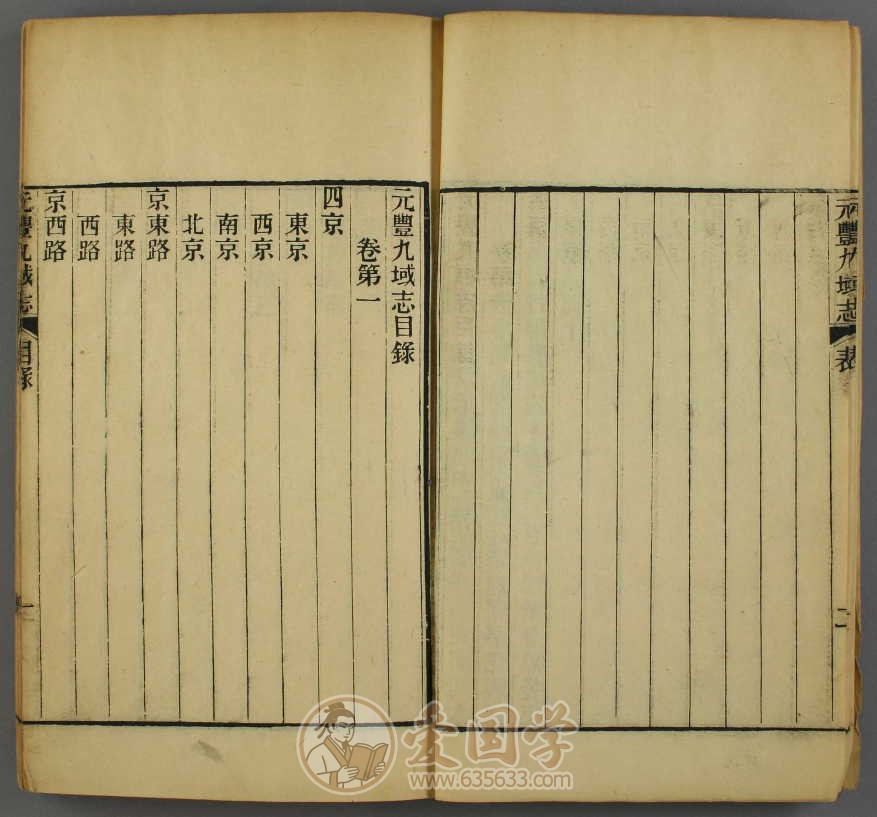 元豐九域志
表
二
元豐九域志目錄
卷第一
四京
東京
西京
南京
北京
京東路
東路
西路
京西路
元豐九域志
目錄
一
爱国学
www.635633.com